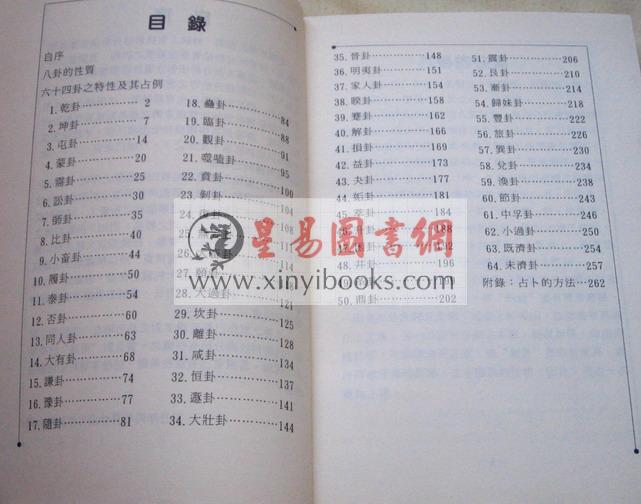 目錄
自序
八卦的性質
六十四卦之特性及其占例
1.乾卦…………2
2.坤卦…………7
3.屯卦…………14
4.蒙卦…………20
5.需卦…………25
6.訟卦…………30
7.師卦…………35
8.比卦…………40
9.小畜卦…………44
10.履卦…………50
11.泰卦…………54
12.否卦…………60
13.同人卦…………63
14.大有卦…………68
15.謙卦…………74
16.豫卦…………77
17.隨卦…………81
18.蠱卦…………84
19.臨卦…………88
20.觀卦…………91
21.噬嗑卦…………95
22.賁卦…………100
23.剝卦…………104
24.
25.
26.
27.頤
28.大過卦…………121
29.坎卦…………125
30.離卦…………128
31.咸卦…………134
32.恒卦…………137
33.遯卦…………141
34.大壯卦…………144
35.晉卦…………148
36.明夷卦…………151
37.家人卦…………154
38.睽卦…………158
39.蹇卦…………162
40.解卦…………166
41.損卦…………169
42.益卦…………173
43.夬卦…………177
44.姤卦…………180
45.萃卦…………184
46.
47. 192
48.井卦…………196
50.鼎卦…………202
51.震卦…………206
52.艮卦…………210
53.漸卦…………214
54.歸妹卦…………218
55.豐卦…………222
56.旅卦…………226
57.巽卦…………230
58.兌卦…………234
59.渙卦…………238
60.節卦…………243
61.中孚卦…………246
62.小過卦…………250
63.既濟卦…………254
64.未濟卦…………257
附錄：占卜的方法…262
星易圖書網
www.xinyibooks.com